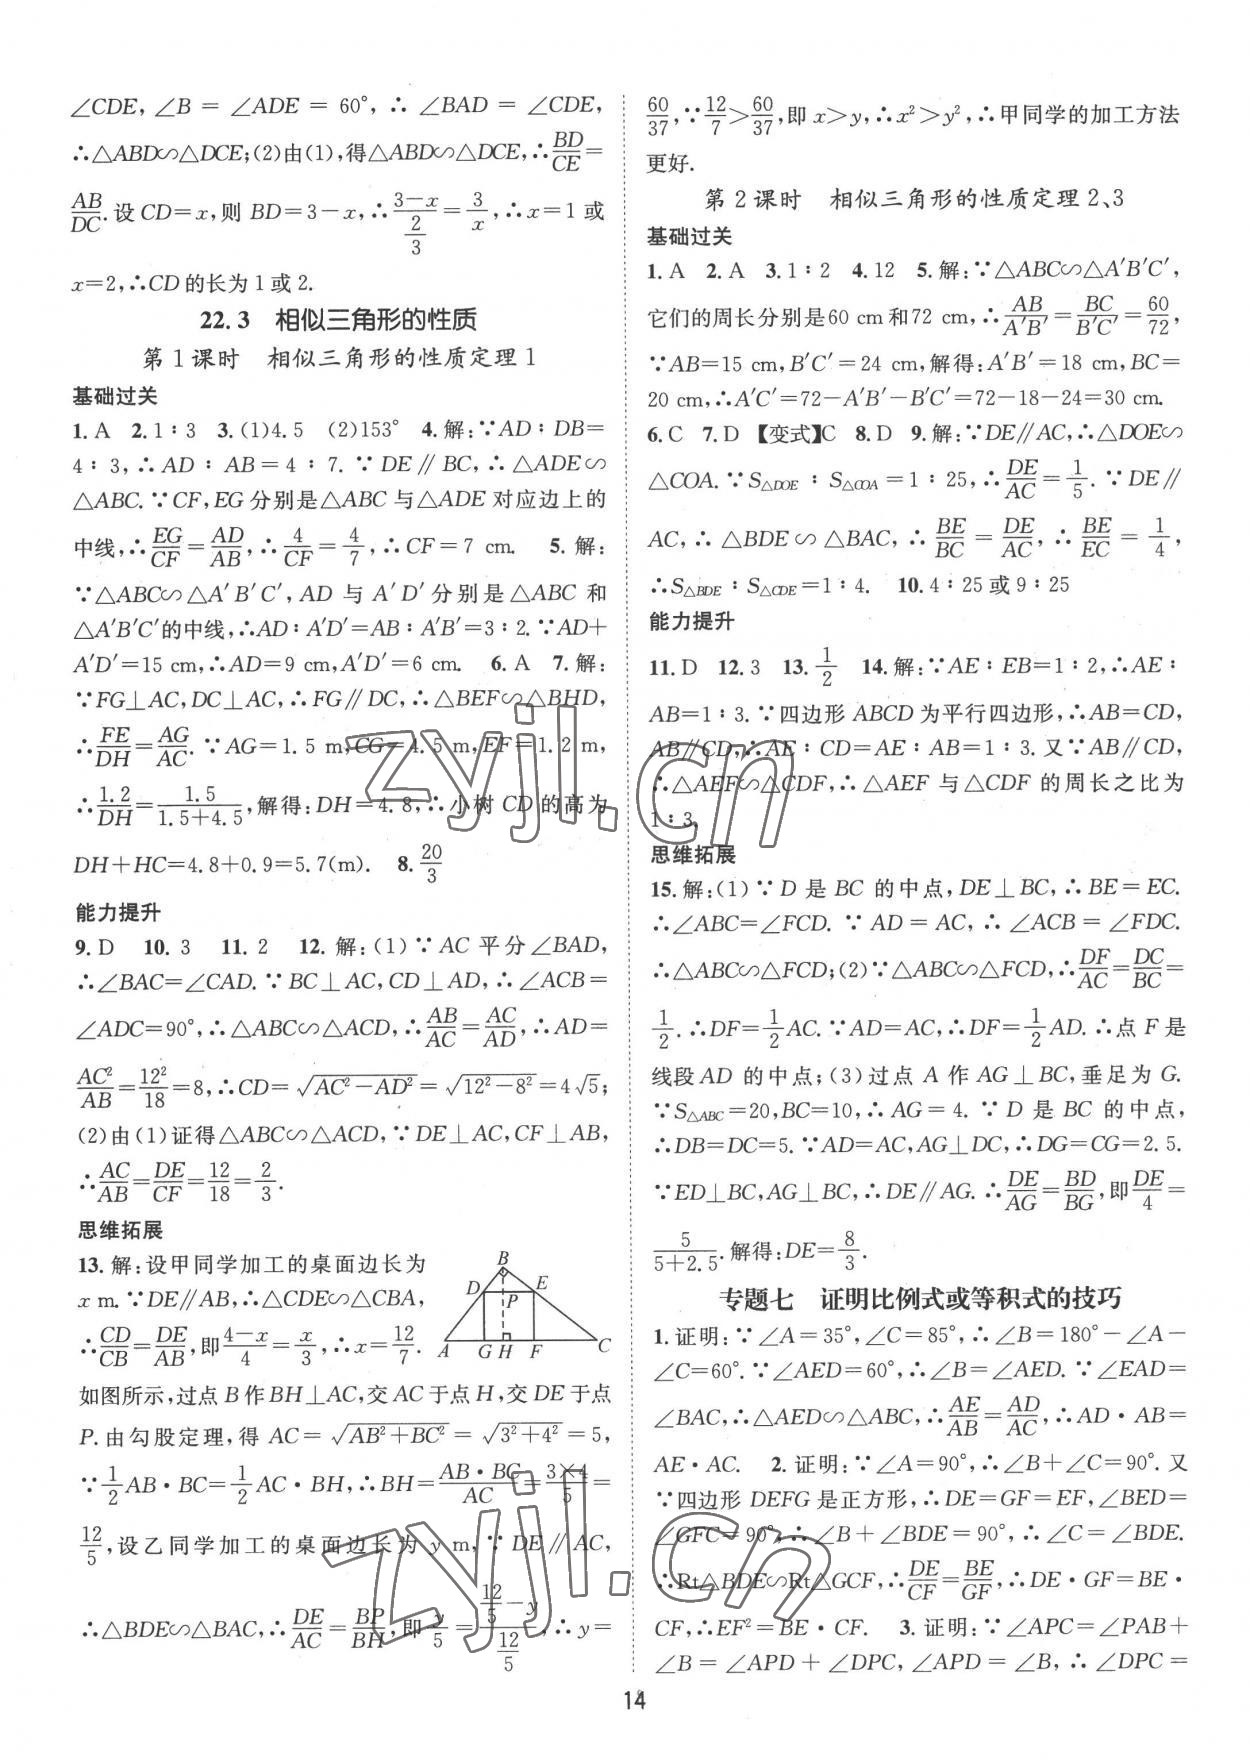 ∠CDE, ∠B = ∠ADE = 60°, ∴ ∠BAD = ∠CDE,
∴△ABD∽△DCE;(2)由(1),得△ABD∽△DCE,∴BD/CE=
AB/DC.设CD=x,则BD=3-x,∴(3-x)/(2/3)=3/x,∴x=1或
x=2,∴CD的长为1或2.
22.3 相似三角形的性质
第1课时 相似三角形的性质定理1
基础过关
1.A 2.1∶3 3.(1)4.5 (2)153° 4.解:∵AD∶DB=
4∶3,∴AD∶AB=4∶7.∵DE∥BC,∴△ADE∽
△ABC.∵CF,EG分别是△ABC与△ADE对应边上的
中线,∴EG/CF=AD/AB,∴4/CF=4/7,∴CF=7 cm. 5.解:
∵△ABC∽△A′B′C′,AD与A′D′分别是△ABC和
△A′B′C′的中线,∴AD∶A′D′=AB∶A′B′=3∶2.∵AD+
A′D′=15 cm,∴AD=9 cm,A′D′=6 cm. 6.A 7.解:
∵FG⊥AC,DC⊥AC,∴FG∥DC,∴△BEF∽△BHD,
∴FE/DH=AG/AC.∵AG=1.5 m,CG=4.5 m,EF=1.2 m,
∴1.2/DH=1.5/(1.5+4.5),解得:DH=4.8,∴小树CD的高为
DH+HC=4.8+0.9=5.7(m). 8.20/3
能力提升
9.D 10.3 11.2 12.解:(1)∵AC平分∠BAD,
∴∠BAC=∠CAD.∵BC⊥AC,CD⊥AD,∴∠ACB=
∠ADC=90°,∴△ABC∽△ACD,∴AB/AC=AC/AD,∴AD=
AC²/AB=12²/18=8,∴CD=√(AC²-AD²)=√(12²-8²)=4√5;
(2)由(1)证得△ABC∽△ACD,∵DE⊥AC,CF⊥AB,
∴AC/AB=DE/CF=12/18=2/3.
思维拓展
13.解:设甲同学加工的桌面边长为
x m.∵DE∥AB,∴△CDE∽△CBA,
∴CD/CB=DE/AB,即(4-x)/4=x/3,∴x=12/7.
B
D E
P
A G H F C
如图所示,过点B作BH⊥AC,交AC于点H,交DE于点
P.由勾股定理,得AC=√(AB²+BC²)=√(3²+4²)=5,
∵1/2AB·BC=1/2AC·BH,∴BH=AB·BC/AC=3×4/5=
12/5,设乙同学加工的桌面边长为y m,∵DE∥AC,
∴△BDE∽△BAC,∴DE/AC=BP/BH,即y/5=(12/5-y)/(12/5),∴y=
60/37,∵12/7>60/37,即x>y,∴x²>y²,∴甲同学的加工方法
更好.
第2课时 相似三角形的性质定理2、3
基础过关
1.A 2.A 3.1∶2 4.12 5.解:∵△ABC∽△A′B′C′,
它们的周长分别是60 cm和72 cm,∴AB/A′B′=BC/B′C′=60/72,
∵AB=15 cm,B′C′=24 cm,解得:A′B′=18 cm,BC=
20 cm,∴A′C′=72-A′B′-B′C′=72-18-24=30 cm.
6.C 7.D 【变式】C 8.D 9.解:∵DE∥AC,∴△DOE∽
△COA.∵S△DOE∶S△COA=1∶25,∴DE/AC=1/5.∵DE∥
AC,∴△BDE∽△BAC,∴BE/BC=DE/AC,∴BE/EC=1/4,
∴S△BDE∶S△CDE=1∶4. 10.4∶25或9∶25
能力提升
11.D 12.3 13.1/2 14.解:∵AE∶EB=1∶2,∴AE∶
AB=1∶3.∵四边形ABCD为平行四边形,∴AB=CD,
AB∥CD,∴AE∶CD=AE∶AB=1∶3.又∵AB∥CD,
∴△AEF∽△CDF,∴△AEF与△CDF的周长之比为
1∶3.
思维拓展
15.解:(1)∵D是BC的中点,DE⊥BC,∴BE=EC.
∴∠ABC=∠FCD.∵AD=AC,∴∠ACB=∠FDC.
∴△ABC∽△FCD;(2)∵△ABC∽△FCD,∴DF/AC=DC/BC=
1/2.∴DF=1/2AC.∵AD=AC,∴DF=1/2AD.∴点F是
线段AD的中点;(3)过点A作AG⊥BC,垂足为G.
∵S△ABC=20,BC=10,∴AG=4.∵D是BC的中点,
∴DB=DC=5.∵AD=AC,AG⊥DC,∴DG=CG=2.5.
∵ED⊥BC,AG⊥BC,∴DE∥AG.∴DE/AG=BD/BG,即DE/4=
5/(5+2.5).解得:DE=8/3.
专题七 证明比例式或等积式的技巧
1.证明:∵∠A=35°,∠C=85°,∴∠B=180°-∠A-
∠C=60°.∵∠AED=60°,∴∠B=∠AED.∵∠EAD=
∠BAC,∴△AED∽△ABC,∴AE/AB=AD/AC,∴AD·AB=
AE·AC. 2.证明:∵∠A=90°,∴∠B+∠C=90°.又
∵四边形DEFG是正方形,∴DE=GF=EF,∠BED=
∠GFC=90°,∴∠B+∠BDE=90°,∴∠C=∠BDE.
∴Rt△BDE∽Rt△GCF,∴DE/CF=BE/GF,∴DE·GF=BE·
CF,∴EF²=BE·CF. 3.证明:∵∠APC=∠PAB+
∠B=∠APD+∠DPC,∠APD=∠B,∴∠DPC=
14
zyjl.cn
zyjl.cn